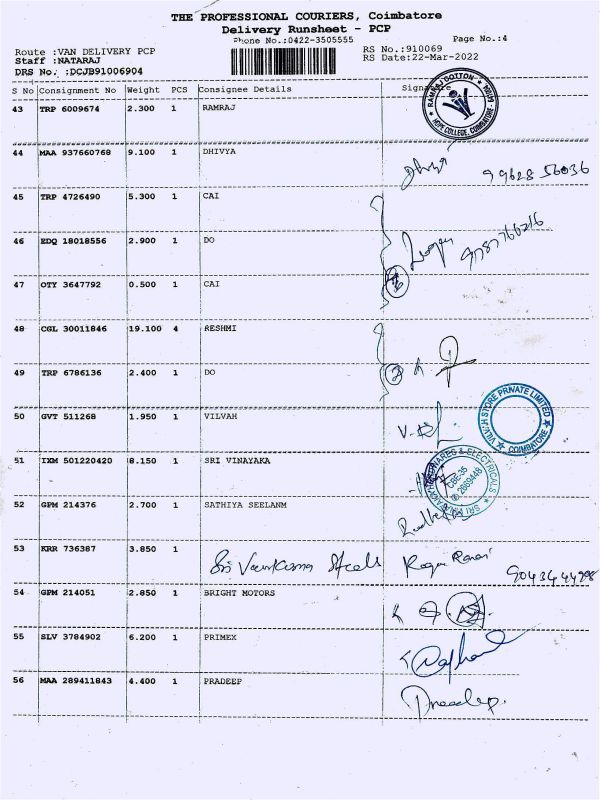 THE PROFESSIONAL COURIERS, Coimbatore
Delivery Runsheet - PCP
Phone No.:0422-3505555
Page No.:4
Route :VAN DELIVERY PCP
RS No.:910069
Staff :NATARAJ
RS Date:22-Mar-2022
DRS No. :DCJB91006904
S No Consignment No Weight PCS Consignee Details Signature
43 TRP 6009674 2.300 1 RAMRAJ
RAMRAJ COTTON
HOPE COLLEGE, COIMBATORE
44 MAA 937660768 9.100 1 DHIVYA
99628 56036
45 TRP 4726490 5.300 1 CAI
46 EDQ 18018556 2.900 1 DO
9787766216
47 OTY 3647792 0.500 1 CAI
48 CGL 30011846 19.100 4 RESHMI
49 TRP 6786136 2.400 1 DO
2
50 GVT 511268 1.950 1 VILVAH
VILVAH STORE PRIVATE LIMITED
COIMBATORE
51 IXM 501220420 8.150 1 SRI VINAYAKA
HARDWARES & ELECTRICALS
CBE-35
2669448
52 GPM 214376 2.700 1 SATHIYA SEELANM
53 KRR 736387 3.850 1
Sri Steels
54 GPM 214051 2.850 1 BRIGHT MOTORS
55 SLV 3784902 6.200 1 PRIMEX
56 MAA 289411843 4.400 1 PRADEEP
Pradeep.